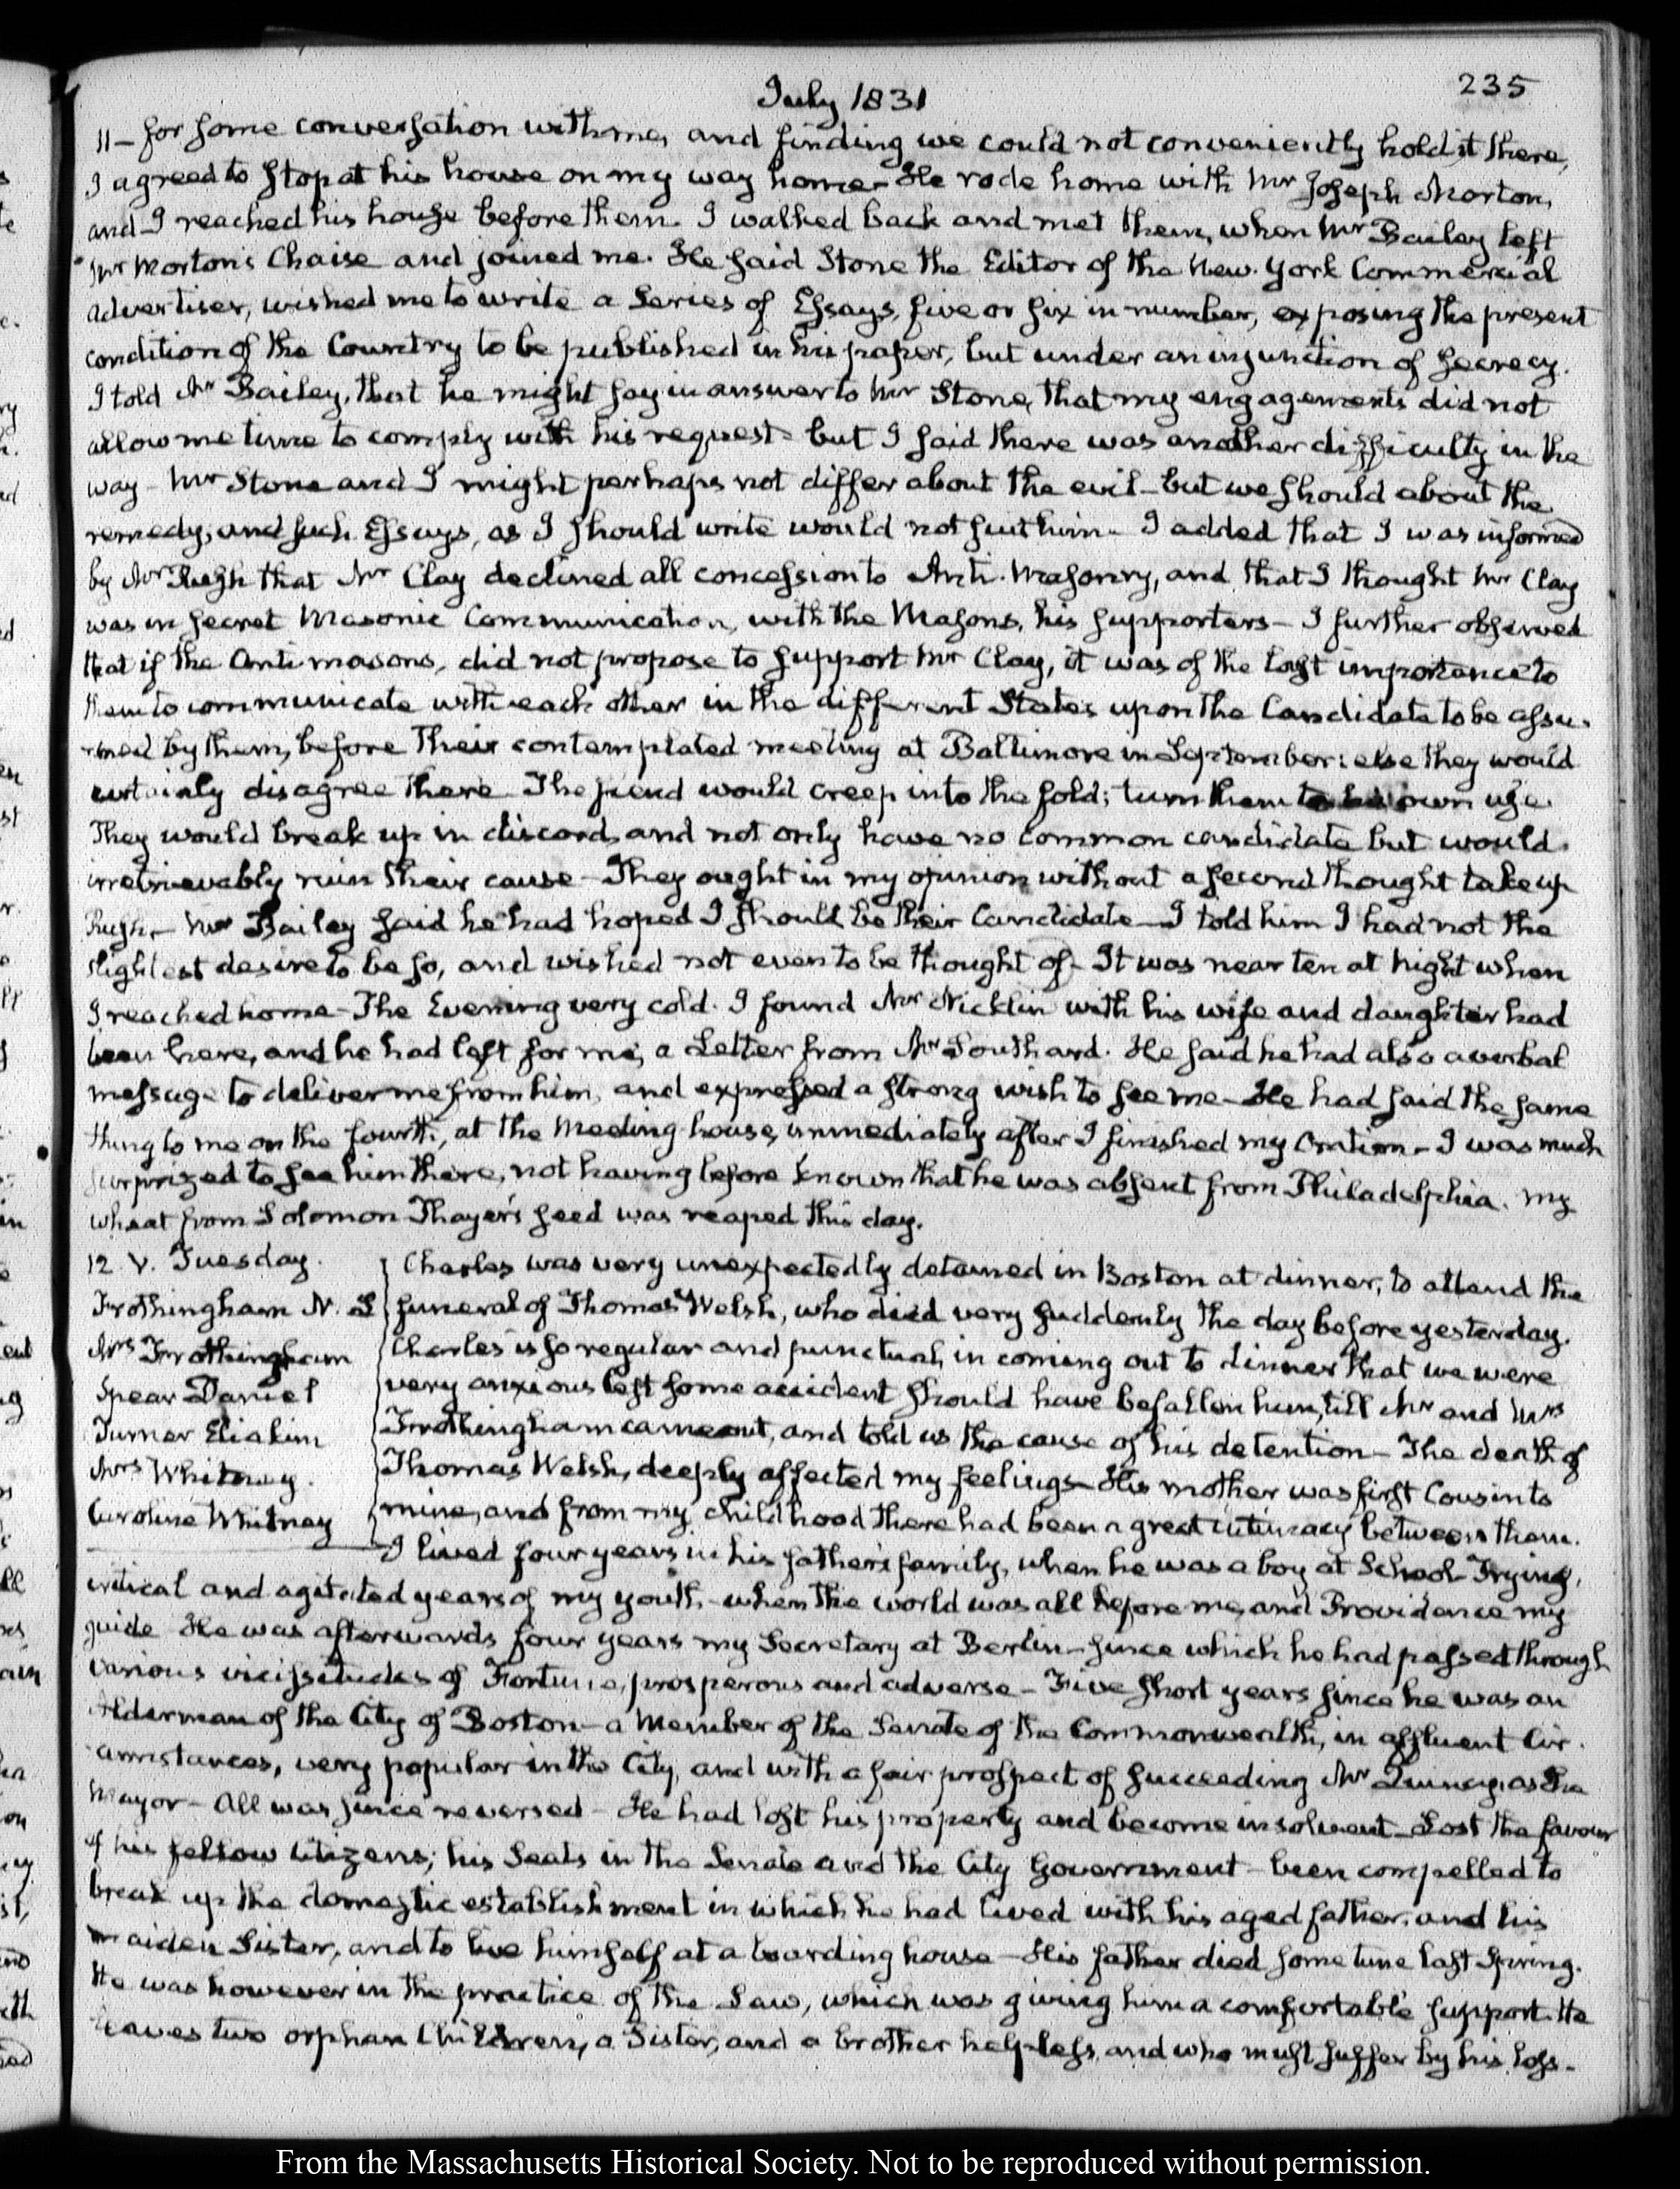 235
July 1831
11 — for some conversation with me, and finding we could not conveniently hold it there,
I agreed to stop at his house on my way home — He rode home with Mr Joseph Morton,
and I reached his house before them. I walked back and met them, when Mr Bailey left
Mr Morton's Chaise and joined me. He said Stone the Editor of the New-York Commercial
advertiser, wished me to write a Series of Essays, five or six in number, exposing the present
condition of the Country to be published in his paper, but under an injunction of Secrecy.
I told Mr Bailey, that he might say in answer to Mr Stone, that my engagements did not
allow me time to comply with his request — but I said there was another difficulty in the
way — Mr Stone and I might perhaps not differ about the evil — but we should about the
remedy, and such Essays, as I should write would not suit him — I added that I was informed
by Mr Rush that Mr Clay declined all concession to Anti-Masonry, and that I thought Mr Clay
was in secret Masonic Communication, with the Masons, his supporters — I further observed
that if the Anti masons, did not propose to support Mr Clay, it was of the last importance to
them to communicate with each other in the different States upon the Candidate to be assu-
-med by them, before their contemplated meeting at Baltimore in September: else they would
certainly disagree there — The fiend would creep into the fold; turn them to his own use.
They would break up in discord, and not only have no common candidate but would
irretrievably ruin their cause — They ought in my opinion without a second thought take up
Rush. — Mr Bailey said he had hoped I should be their Candidate — I told him I had not the
slightest desire to be so, and wished not even to be thought of — It was near ten at Night when
I reached home — The Evening very cold. I found Mr Nicklin with his wife and daughter had
been here, and he had left for me, a Letter from Mr Southard. He said he had also a verbal
message to deliver me from him, and expressed a strong wish to see me — He had said the same
thing to me on the fourth, at the Meeting-house, immediately after I finished my Oration — I was much
surprized to see him there, not having before known that he was absent from Philadelphia. My
wheat from Solomon Thayer's seed was reaped this day.
12. V. Tuesday.
Frothingham N. L
Mrs Frothingham
Spear Daniel
Turner Eliakim
Mrs Whitney
Caroline Whitney
Charles was very unexpectedly detained in Boston at dinner, to attend the
funeral of Thomas Welsh, who died very suddenly the day before yesterday.
Charles is so regular and punctual, in coming out to dinner that we were
very anxious lest some accident should have befallen him, till Mr and Mrs
Frothingham came out, and told us the cause of his detention — The death of
Thomas Welsh, deeply affected my feelings — His mother was first Cousin to
mine, and from my childhood there had been a great intimacy between them.
I lived four years in his father's family, when he was a boy at School — Trying,
critical and agitated years of my youth — when the world was all before me, and Providence my
guide — He was afterwards four years my Secretary at Berlin — since which he had passed through
various vicissitudes of Fortune, prosperous and adverse — Five short years since he was an
Alderman of the City of Boston — a Member of the Senate of the Commonwealth, in affluent Cir-
-cumstances, very popular in the City, and with a fair prospect of succeeding Mr Quincy, as the
Mayor — All was since reversed — He had lost his property and become insolvent — Lost the favour
of his fellow Citizens; his Seats in the Senate and the City Government — been compelled to
break up the domestic establishment in which he had lived with his aged father, and his
maiden Sister, and to live himself at a boarding house — His father died some time last Spring.
He was however in the practice of the Law, which was giving him a comfortable support. He
leaves two orphan Children, a Sister, and a brother helpless, and who must suffer by his loss —
From the Massachusetts Historical Society. Not to be reproduced without permission.